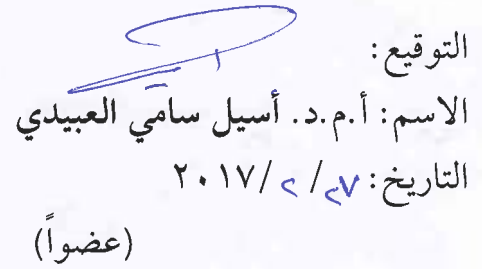 التوقيع:
الاسم: أ.م.د. أسيل سامي العبيدي
التاريخ: ٢٧/ ٢ /٢٠١٧
(عضواً)